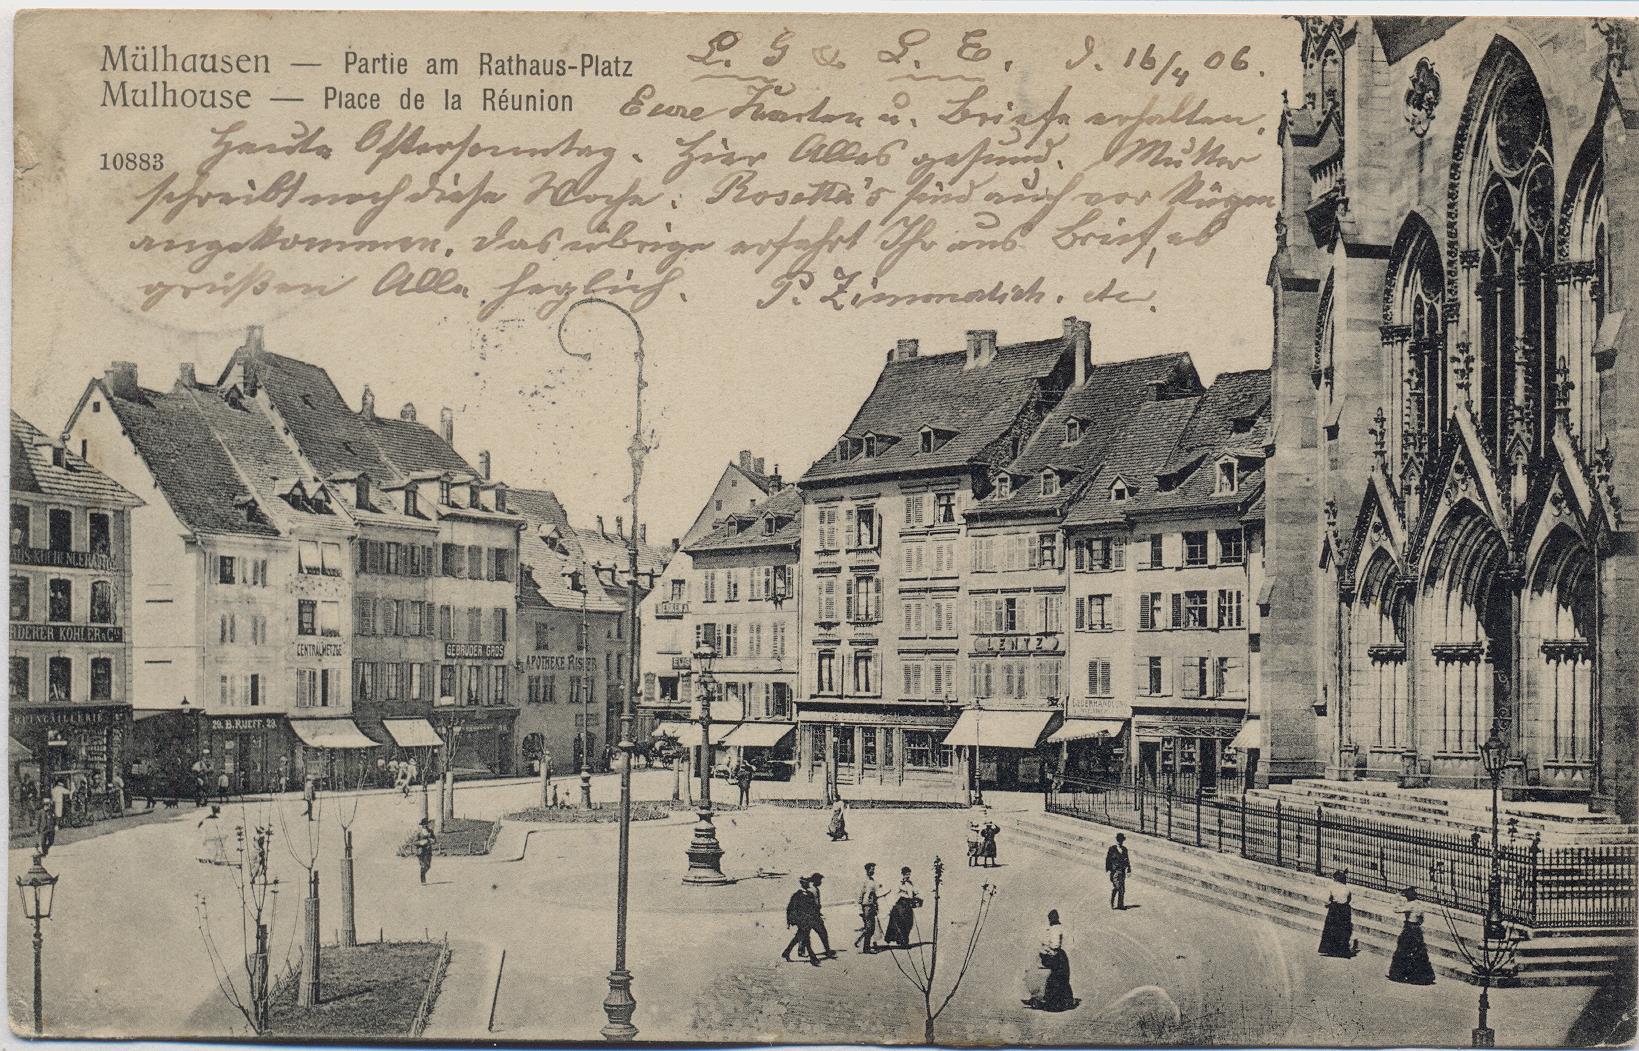 Mülhausen — Partie am Rathaus-Platz
Mulhouse — Place de la Réunion
10883
L. G & L. E. d. 16/4 06.
Eure Karten u. Briefe erhalten.
Heute Ostersonntag. Hier Alles gesund. Mutter
schreibt noch diese Woche. Rosetta's sind auch vor
angekommen. Das übrige erfahrt Ihr aus Brief, es
grüßen Alle herzlich. P.
KOHLER & Cie
CENTRALMETZGE
GEBRÜDER GROS
APOTHEKE RISLER
LENTZ
29. B. RUEFF. 29.
QUINCAILLERIE